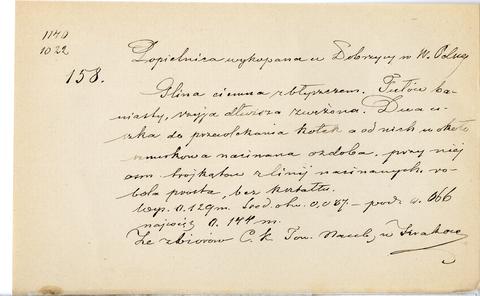 1140
1022
158.
Popielnica wykopana w Dobrzycy w W. Polsce
Glina ciemna z błyszczem. Tułów ba-
niasty, szyja dłuższa zwężona. Dwa u-
szka do przewlekania kółek a od nich w około
sznurkowa nacinana ozdoba, przy niej
osm trójkątów z linij nacinanych, ro-
bota prosta, bez kształtu.
Wys. 0.129 m. Śred. otw. 0.087 – pods. 0.066
najwięk. 0.144 m.
Ze zbiorów C. k. Tow. Nauk. w Krakowie